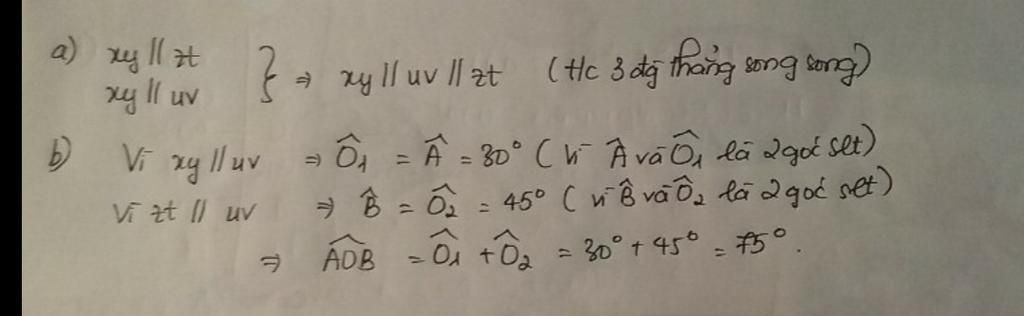 a) xy // zt
xy // uv } ⇒ xy // uv // zt (t/c 3 đg thẳng song song)
b) Vì xy // uv ⇒ Ô₁ = Â = 30° (vì Â và Ô₁ là 2 góc slt)
Vì zt // uv ⇒ B̂ = Ô₂ = 45° (vì B̂ và Ô₂ là 2 góc slt)
⇒ AOB̂ = Ô₁ + Ô₂ = 30° + 45° = 75°.